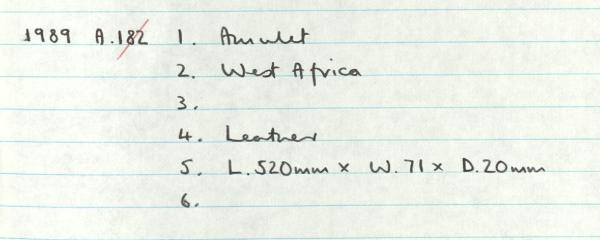 1989 A.182 1. Amulet
2. West Africa
3.
4. Leather
5. L.520mm x W.71 x D.20mm
6.